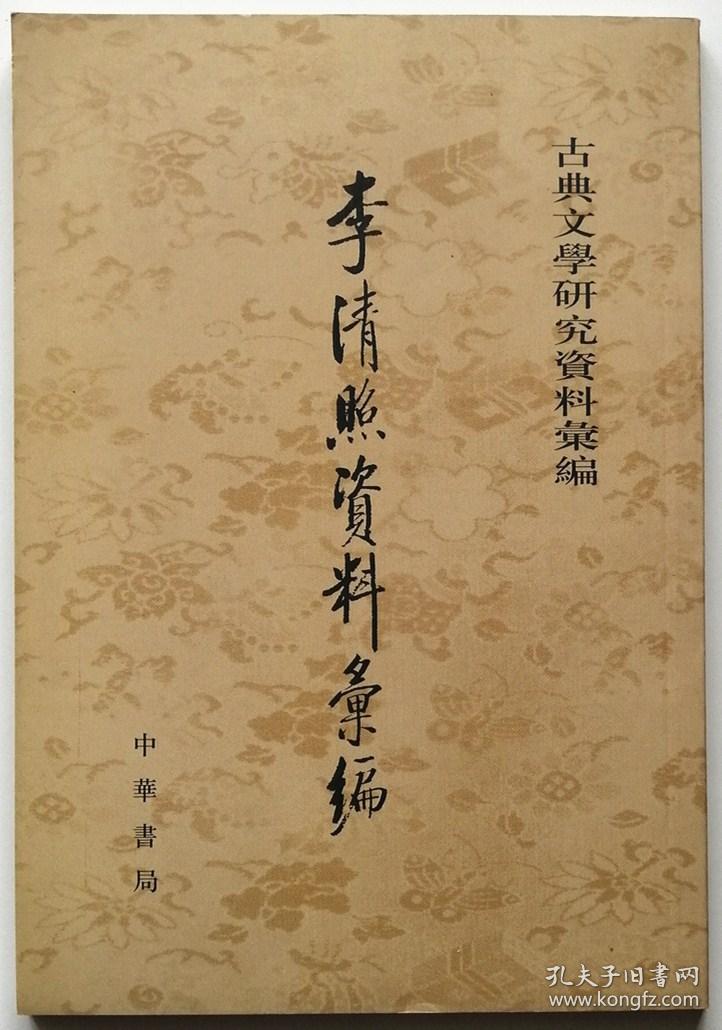 古典文學研究資料彙編
李清照資料彙編
中華書局
孔夫子旧书网
www.kongfz.com